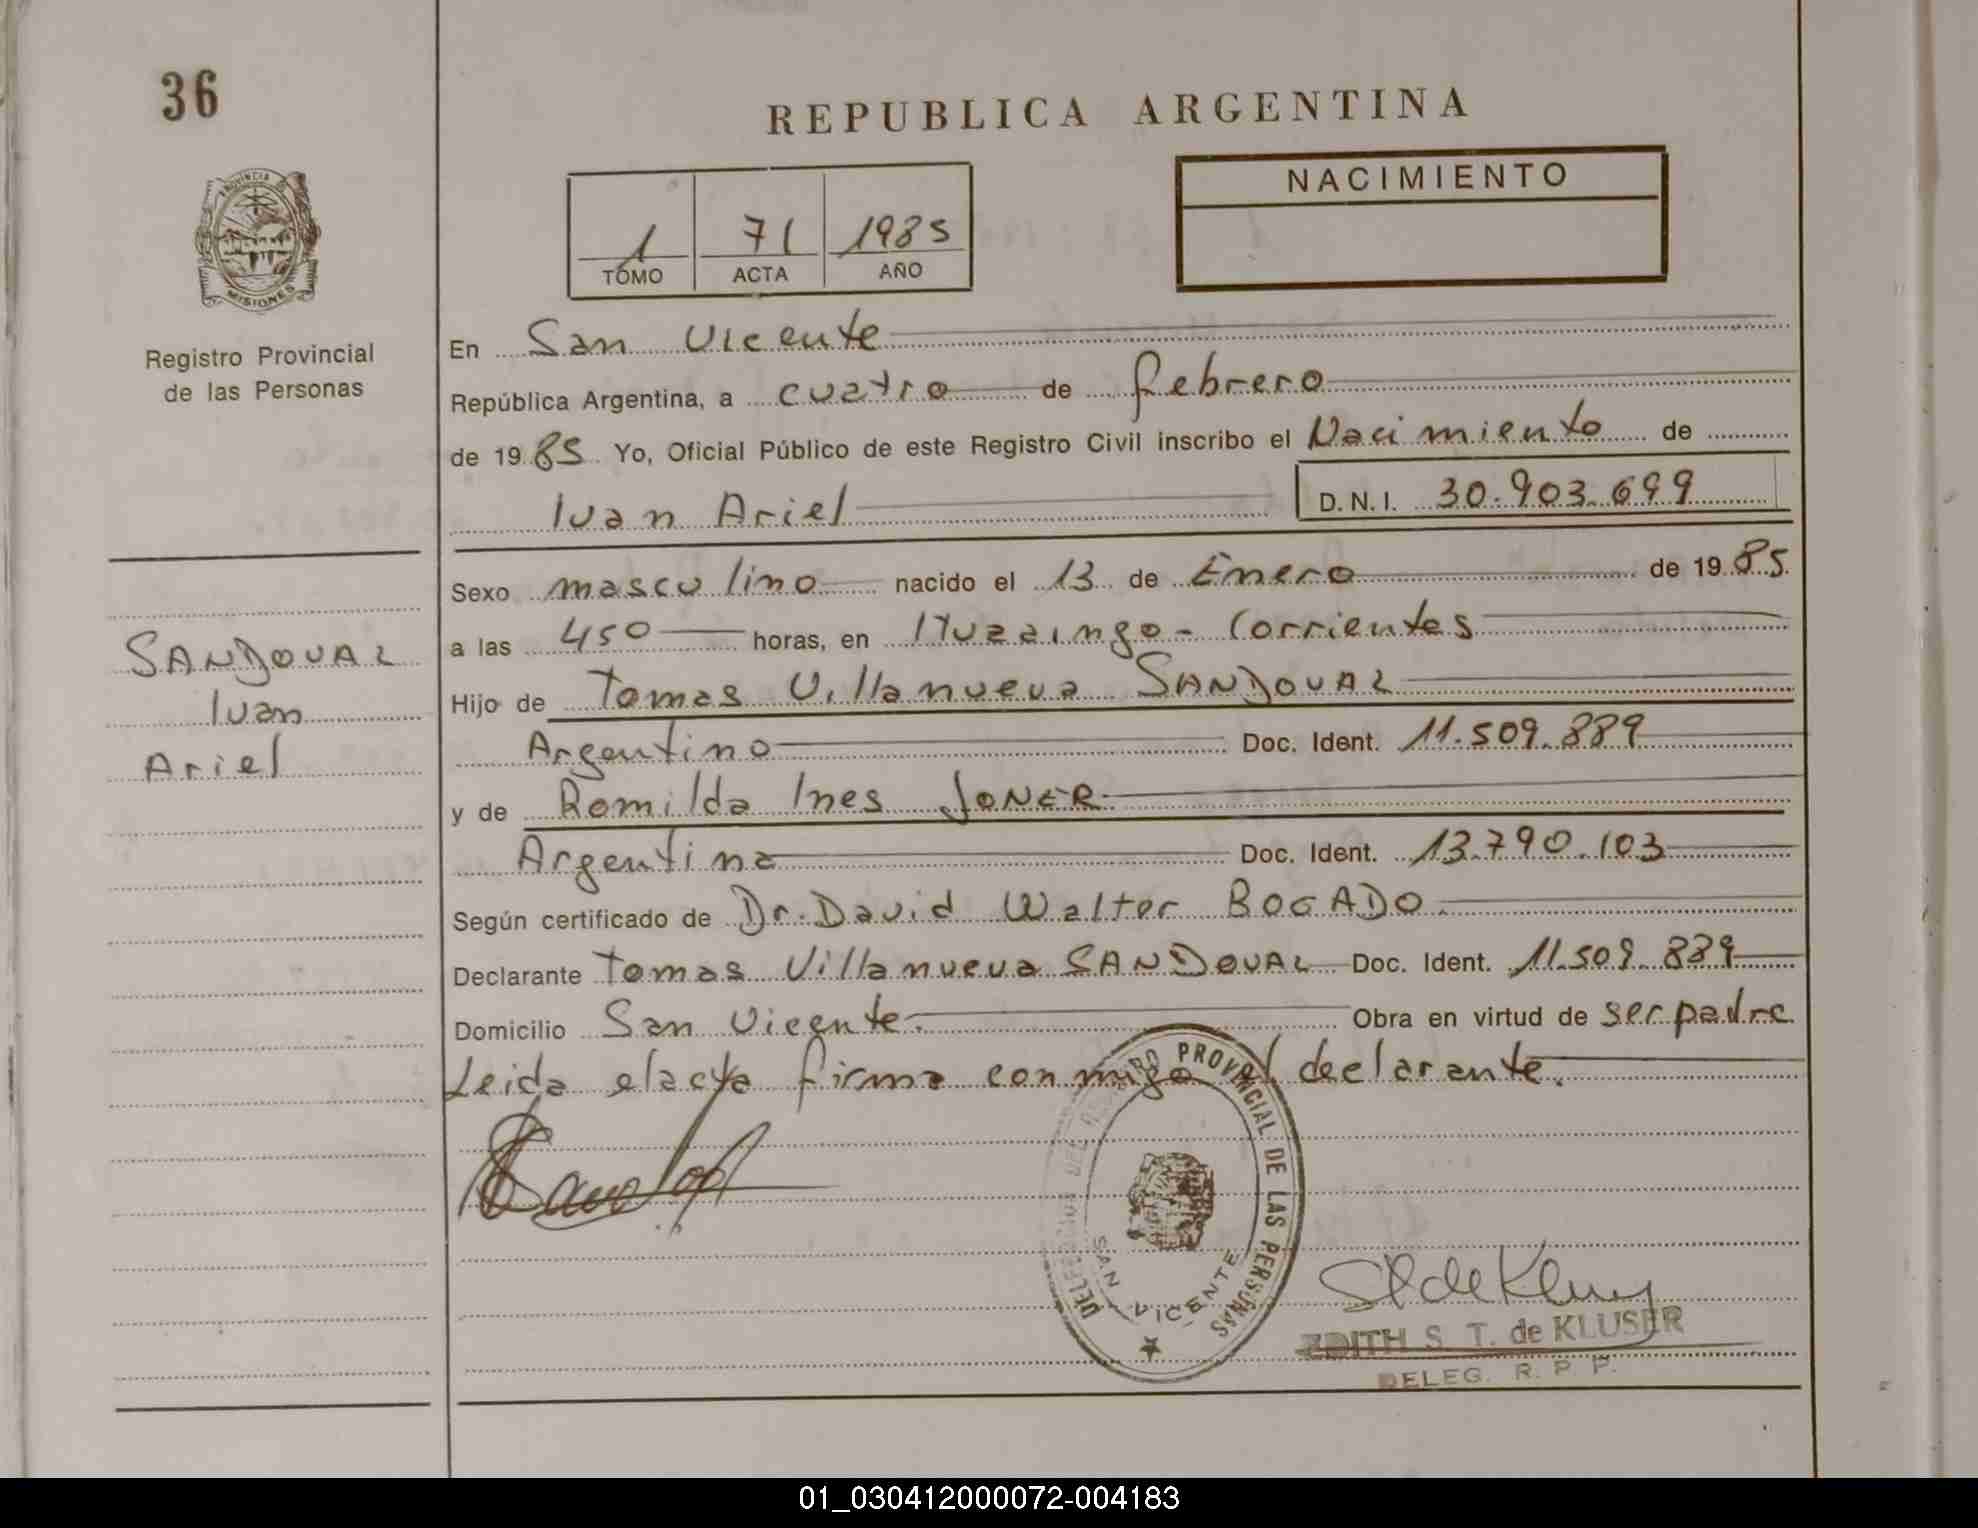 36
REPUBLICA ARGENTINA
PROVINCIA DE
MISIONES
Registro Provincial
de las Personas
1 71 1985
TOMO ACTA AÑO
NACIMIENTO
En San Vicente
República Argentina, a cuatro de febrero
de 1985 Yo, Oficial Público de este Registro Civil inscribo el Nacimiento de
Ivan Ariel D.N.I. 30.903.699
Sexo masculino nacido el 13 de Enero de 1985
a las 450 horas, en Ituzaingo - Corrientes
Hijo de Tomas Villanueva SANDOVAL
Argentino Doc. Ident. 11.509.889
y de Romilda Ines JONER
Argentina Doc. Ident. 13.790.103
Según certificado de Dr. David Walter BOGADO.
Declarante Tomas Villanueva SANDOVAL Doc. Ident. 11.509.889
Domicilio San Vicente. Obra en virtud de ser padre
Leida el acta firma conmigo el declarante.
SANDOVAL
Ivan
Ariel
DELEGACION DEL REGISTRO PROVINCIAL DE LAS PERSONAS
SAN VICENTE
EDITH S. T. de KLUSER
DELEG. R. P. P.
01_030412000072-004183